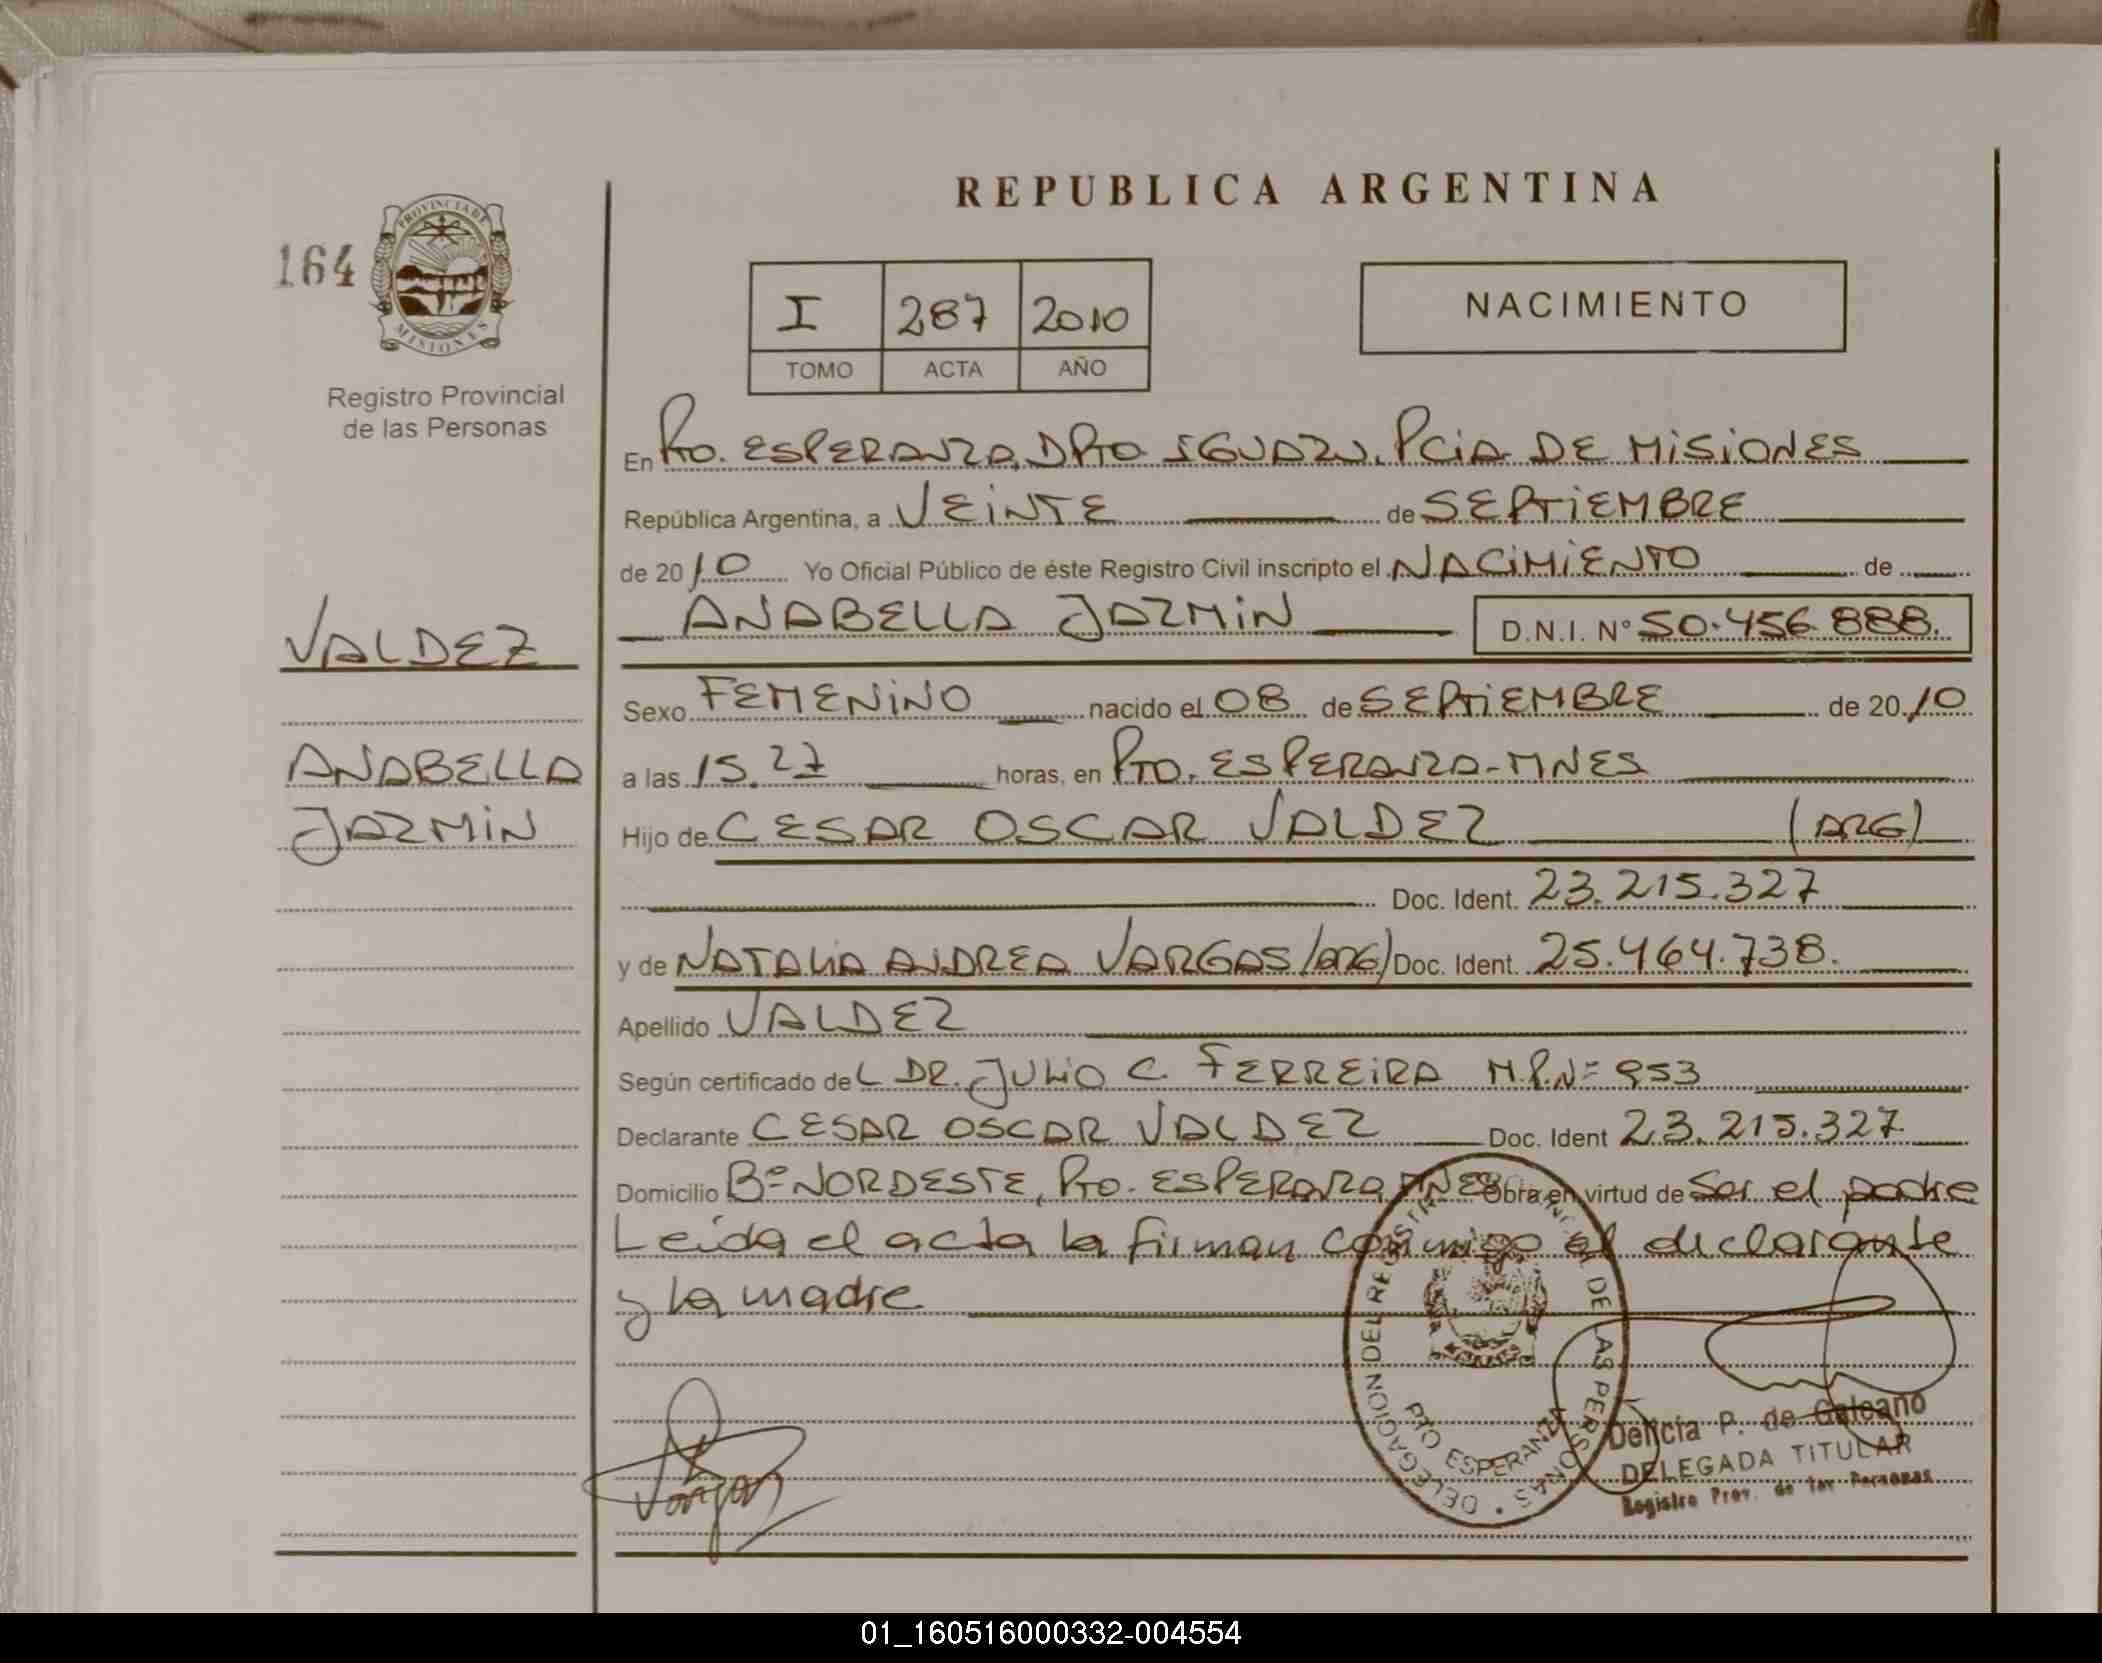 REPUBLICA ARGENTINA
164
PROVINCIA DE
MISIONES
Registro Provincial
de las Personas
I 287 2010
TOMO ACTA AÑO
NACIMIENTO
En Pto. ESPERANZA, DPTO IGUAZU, PCIA DE MISIONES
República Argentina, a VEINTE de SEPTIEMBRE
de 2010 Yo Oficial Público de éste Registro Civil inscripto el NACIMIENTO de
ANABELLA JAZMIN D.N.I. N° 50.456.888.
VALDEZ
ANABELLA
JAZMIN
Sexo FEMENINO nacido el 08 de SEPTIEMBRE de 2010
a las 15.27 horas, en PTO. ESPERANZA-MNES
Hijo de CESAR OSCAR VALDEZ (ARG)
Doc. Ident. 23.215.327
y de NATALIA ANDREA VARGAS (ARG) Doc. Ident. 25.464.738.
Apellido VALDEZ
Según certificado del DR. JULIO C. FERREIRA M.P.Nº 953
Declarante CESAR OSCAR VALDEZ Doc. Ident 23.215.327
Domicilio Bº NORDESTE, Pto. ESPERANZA MNES Obra en virtud de Ser el padre
Leida el acta la firman conmigo el declarante
y la madre
DELEGACION DEL REGISTRO PROVINCIAL DE LAS PERSONAS
PTO ESPERANZA
Vargas
Delicia P. de Galeano
DELEGADA TITULAR
Registro Prov. de las Personas
01_160516000332-004554